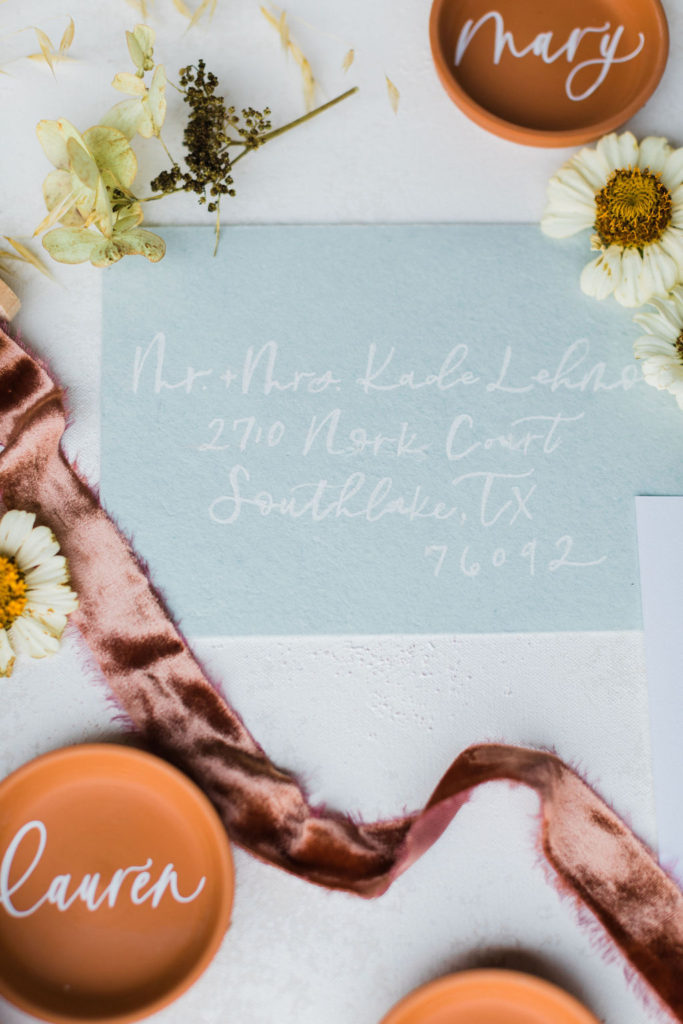 mary
Mr. + Mrs. Kade
2710 Nork Court
Southlake, TX
76092
lauren